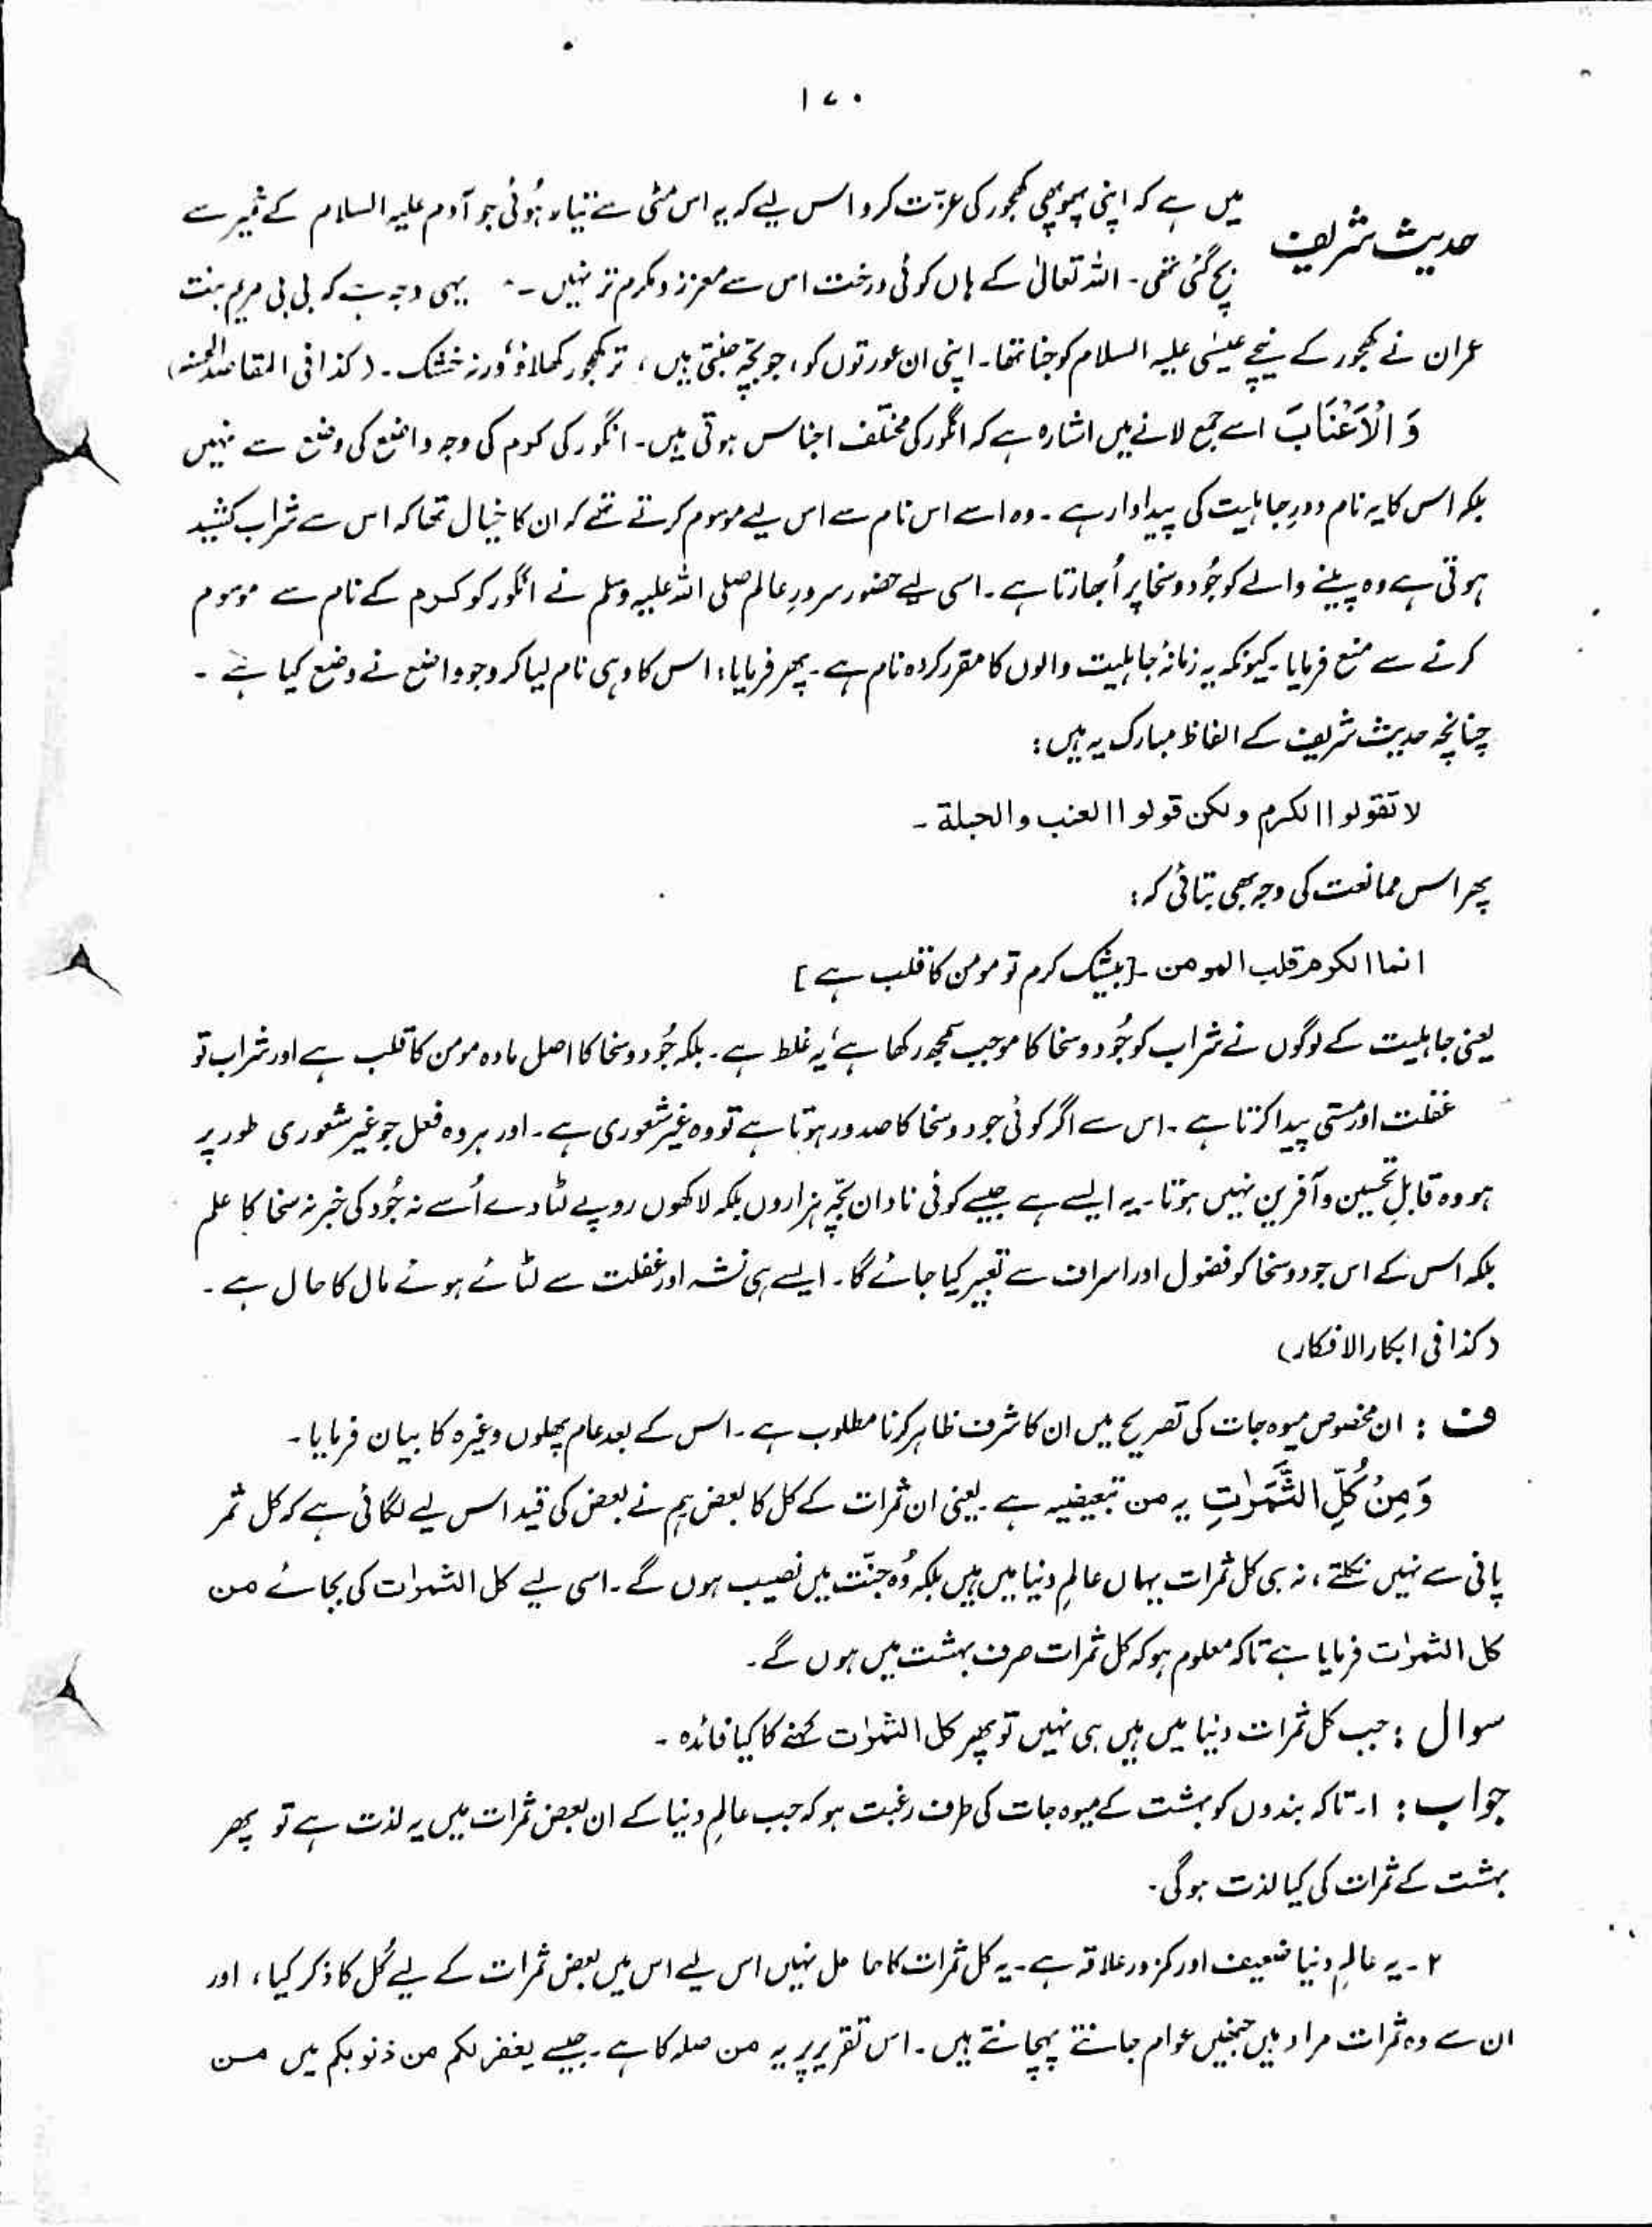 ۱۷۰
حدیث شریف میں ہے کہ اپنی پھوپھی کھجور کی عزت کرو اس لیے کہ یہ اس مٹی سے تیار ہُوئی جو آدم علیہ السلام کے خمیر سے
بچ گئی تھی۔ اللہ تعالیٰ کے ہاں کوئی درخت اس سے معزز و مکرم تر نہیں۔ یہی وجہ ہے کہ بی بی مریم بنت
عمران نے کھجور کے نیچے عیسٰی علیہ السلام کو جنا تھا۔ اپنی ان عورتوں کو، جو بچّہ جنتی ہیں، تر کھجور کھلاؤ، ورنہ خشک۔ (کذا فی المقاصد الحسنہ)
وَ الْاَعْنَابَ اسے جمع لانے میں اشارہ ہے کہ انگور کی مختلف اجناس ہوتی ہیں۔ انگور کی کرم کی وجہ واضع کی وضع سے نہیں
بلکہ اس کا یہ نام دورِ جاہلیت کی پیداوار ہے۔ وہ اسے اس نام سے اس لیے موسوم کرتے تھے کہ ان کا خیال تھا کہ اس سے شراب کشید
ہوتی ہے وہ پینے والے کو جُود و سخا پر اُبھارتا ہے۔ اسی لیے حضور سرورِ عالم صلی اللہ علیہ وسلم نے انگور کو کرم کے نام سے موسوم
کرنے سے منع فرمایا۔ کیونکہ یہ زمانۂ جاہلیت والوں کا مقرر کردہ نام ہے۔ پھر فرمایا: اس کا وہی نام لیا کرو جو واضع نے وضع کیا ہے۔
چنانچہ حدیث شریف کے الفاظ مبارک یہ ہیں:
لا تقولوا الکرم ولکن قولوا العنب والحبلة۔
پھر اس ممانعت کی وجہ بھی بتائی کہ:
انما الکرم قلب المومن۔ [بیشک کرم تو مومن کا قلب ہے]
یعنی جاہلیت کے لوگوں نے شراب کو جُود و سخا کا موجب سمجھ رکھا ہے، یہ غلط ہے۔ بلکہ جُود و سخا کا اصل مادہ مومن کا قلب ہے اور شراب تو
غفلت اور مستی پیدا کرتا ہے۔ اس سے اگر کوئی جود و سخا کا صدور ہوتا ہے تو وہ غیر شعوری ہے۔ اور ہر وہ فعل جو غیر شعوری طور پر
ہو وہ قابلِ تحسین و آفرین نہیں ہوتا۔ یہ ایسے ہے جیسے کوئی نادان بچّہ ہزاروں بلکہ لاکھوں روپے لٹا دے اُسے نہ جُود کی خبر نہ سخا کا علم
بلکہ اس کے اس جود و سخا کو فضول اور اسراف سے تعبیر کیا جائے گا۔ ایسے ہی نشہ اور غفلت سے لٹائے ہوئے مال کا حال ہے۔
(کذا فی ابکار الافکار)
ف : ان مخصوص میوہ جات کی تصریح میں ان کا شرف ظاہر کرنا مطلوب ہے۔ اس کے بعد عام پھلوں وغیرہ کا بیان فرمایا۔
وَمِنْ کُلِّ الثَّمَرٰتِ یہ من تبعیضیہ ہے۔ یعنی ان ثمرات کے کل کا بعض ہم نے بعض کی قید اس لیے لگائی ہے کہ کل ثمر
پانی سے نہیں نکلتے، نہ ہی کل ثمرات یہاں عالمِ دنیا میں ہیں بلکہ وُہ جنّت میں نصیب ہوں گے۔ اسی لیے کل الثمرات کی بجائے من
کل الثمرٰت فرمایا ہے تاکہ معلوم ہو کہ کل ثمرات صرف بہشت میں ہوں گے۔
سوال : جب کل ثمرات دنیا میں ہیں ہی نہیں تو پھر کل الثمرٰت کہنے کا کیا فائدہ۔
جواب : ۱۔ تاکہ بندوں کو بہشت کے میوہ جات کی طرف رغبت ہو کہ جب عالمِ دنیا کے ان بعض ثمرات میں یہ لذت ہے تو پھر
بہشت کے ثمرات کی کیا لذت ہوگی۔
۲۔ یہ عالمِ دنیا ضعیف اور کمزور علاقہ ہے۔ یہ کل ثمرات کا حامل نہیں اس لیے اس میں بعض ثمرات کے لیے کُل کا ذکر کیا، اور
ان سے وہ ثمرات مراد ہیں جنھیں عوام جانتے پہچانتے ہیں۔ اس تقریر پر یہ من صلہ کا ہے۔ جیسے یغفر لکم من ذنوبکم میں من